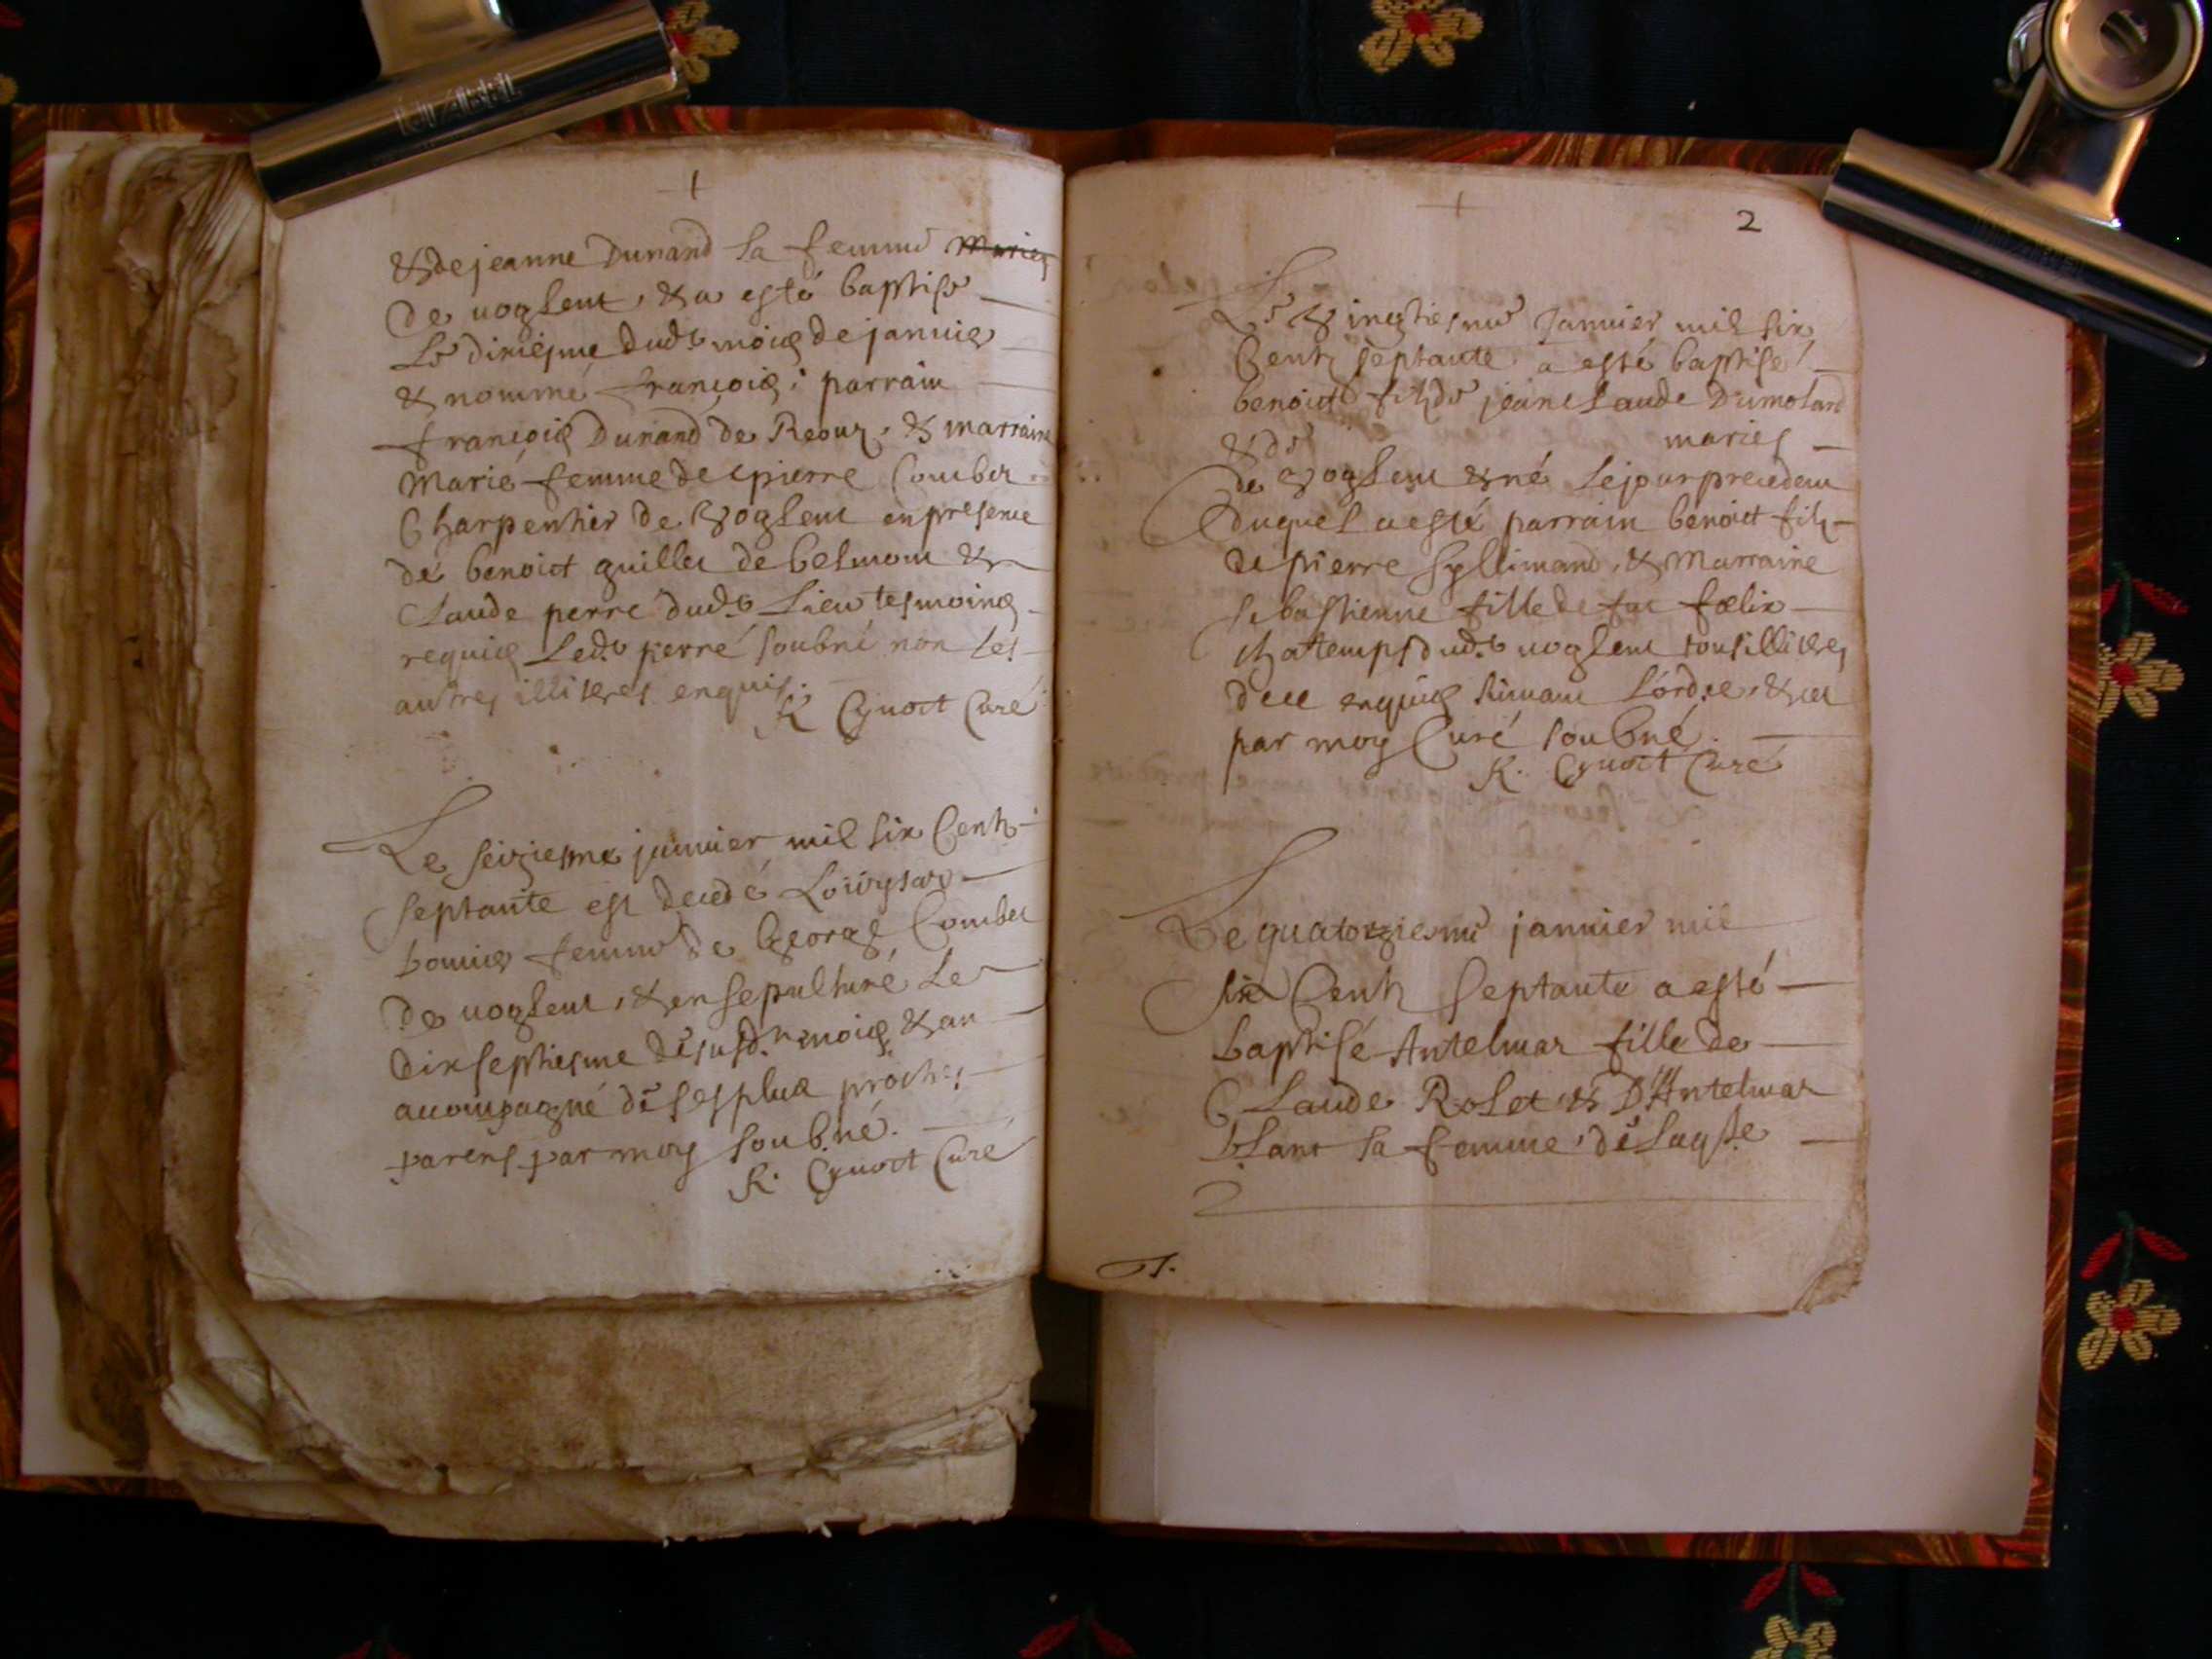 & de jeanne Dunand sa femme mariez
de voglent, & a esté baptisé
Le dixiesme dud.t mois de janvier
& nommé françois ; parrain
françois Dunand de Reoux, & marraine
Marie femme de pierre Combet
Charpentier de voglent en presence
de benoict guillet de belmont &
Claude perre dud.t Lieu tesmoins
requis Led.t perré soubné non les
autres illiteres enquis.
R Cynoct Curé
Le seiziesme janvier mil six Centz
septante est decedé
femme de George Combet
de voglent, & ensepulturé Le
dixseptiesme desusd.t mois & an
acompagné de ses plus proches
parens par moy soubné.
R. Cynoct Curé
2
Le vingtiesme Janvier mil six
Centz septante a esté baptisé
benoict filz de jean Claude Dumolard
& de mariés
de voglent & né le jour precedent
Duquel a esté parrain benoict filz
de pierre Syllimand, & Marraine
sebastienne fille de fœlix
chatemps dud.t voglent tous illiteres
de ce enquis suivant L'ordre, & ce
par moy Curé soubné.
R. Cynoct Curé
Le quatorziesme janvier mil
six Centz septante a esté
baptisé Antelmaz fille de
Claude Rolet & D'Antelmaz
blanc sa femme, de